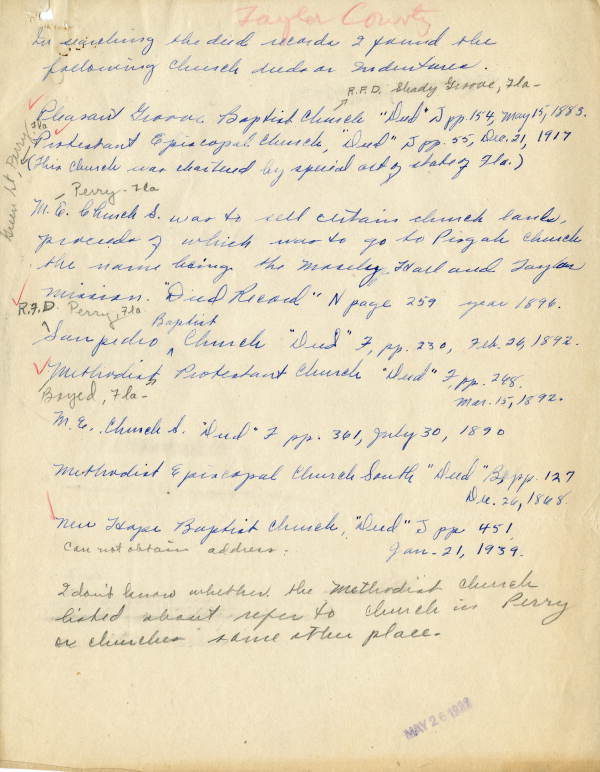 Taylor County
In searching the deed records I found the
following church deeds or Indentures.
R.F.D. Shady Groove, Fla-
Pleasant Groove Baptist Church "Deed" J pp. 154, May 15, 1883.
Protestant Episcopal Church, "Deed" J pp. 55, Dec. 21, 1917
Green St, Perry, Fla
(This Church was chartered by special act of state of Fla.)
Perry- Fla
M. E. Church S. was to sell certain church lands,
proceeds of which was to go to Pisgah Church
the name being the Mosely Hall and Taylor
Mission. "Deed Record" N page 259 year 1896.
R.F.D. Perry, Fla.
Baptist
San pedro Church "Deed" F, pp. 230, Feb. 26, 1892.
Methodist Protestant Church "Deed" F, pp. 248.
Boyed, Fla-
Mar. 15, 1892.
M. E. Church S. "Deed" F pp. 361, July 30, 1890
Methodist Episcopal Church South "Deed" B pp. 127
Dec. 26, 1868.
New Hope Baptist Church, "Deed" J pp 451,
Can not obtain address.
Jan- 21, 1939.
I don't know whether the Methodist Church
listed about refer to church in Perry
or churches some other place.
MAY 26